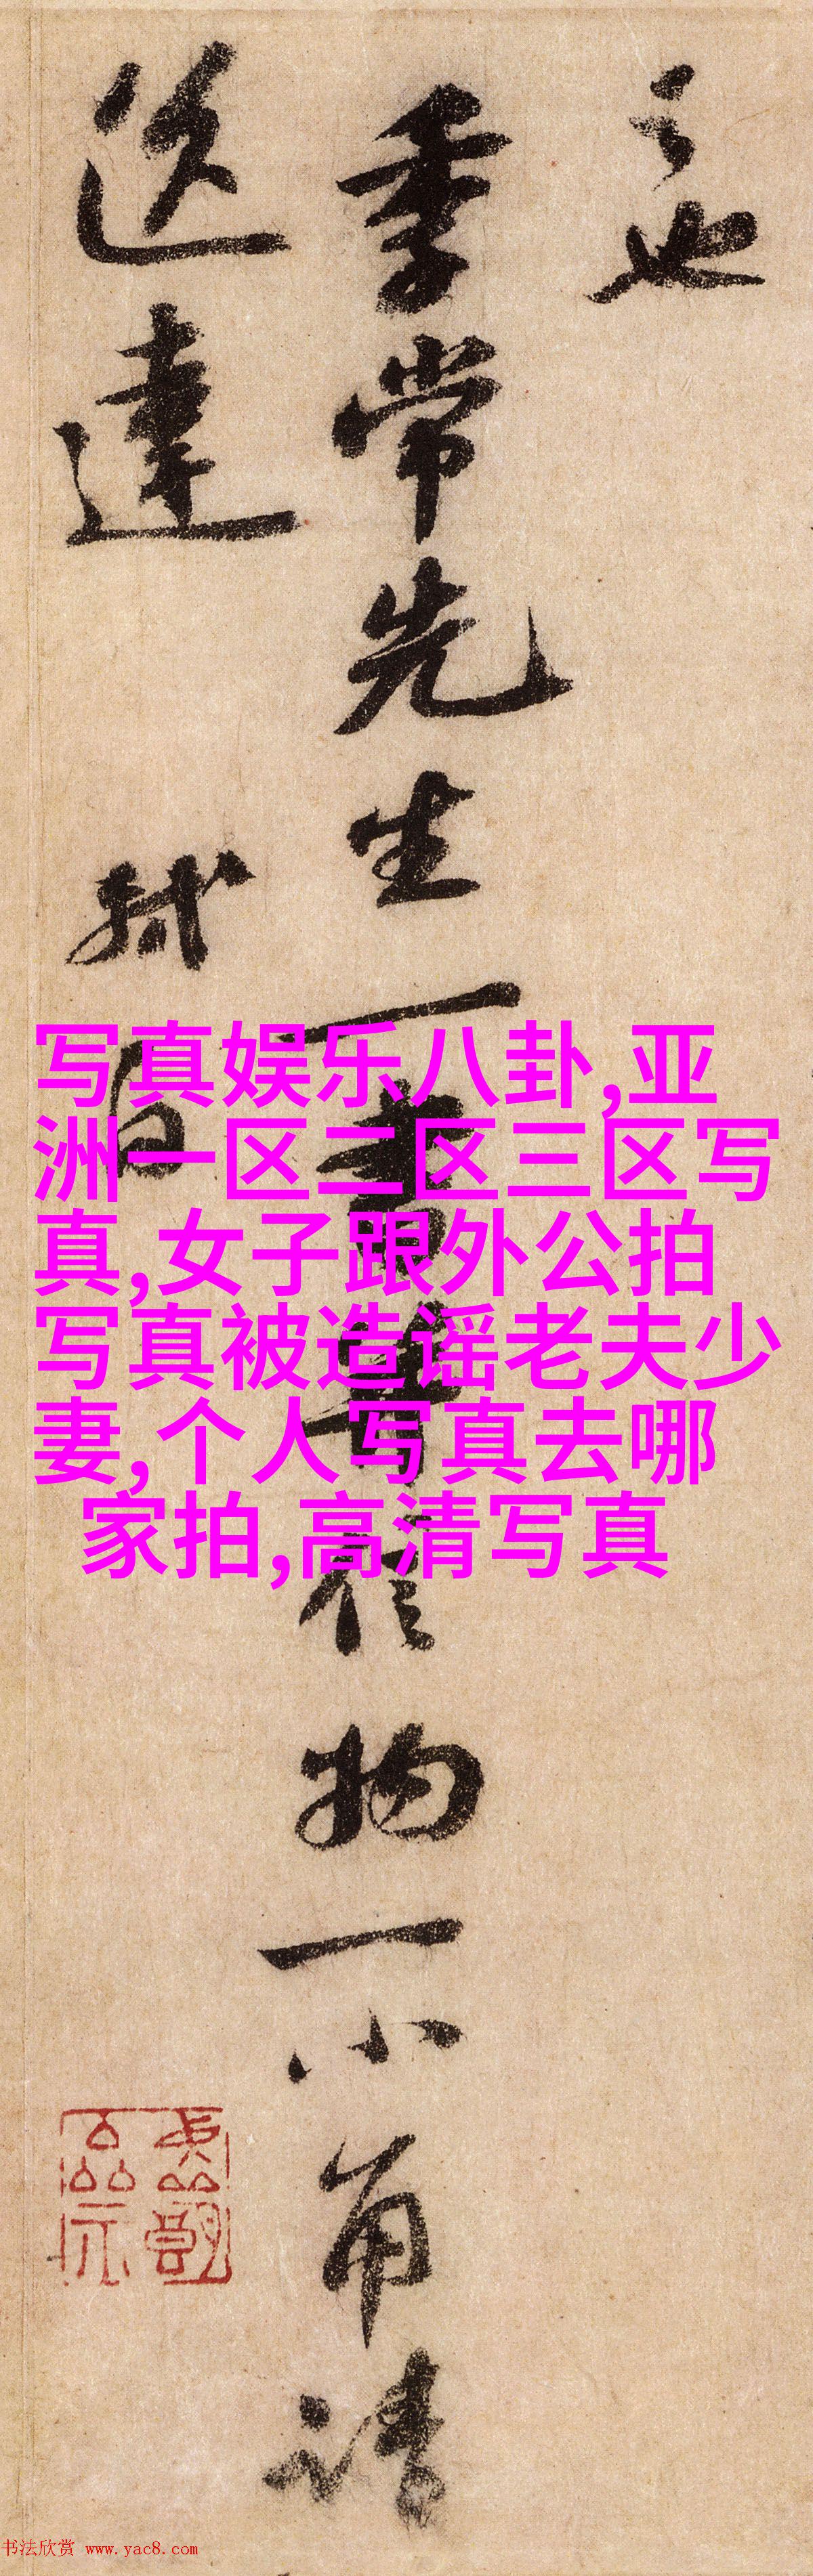 之也
季常先生一書并信物一小角請
送達 軾白
写真娱乐八卦,亚
洲一区二区三区写
真,女子跟外公拍
写真被造谣老夫少
妻,个人写真去哪
家拍,高清写真
书法欣赏 www.yac8.com